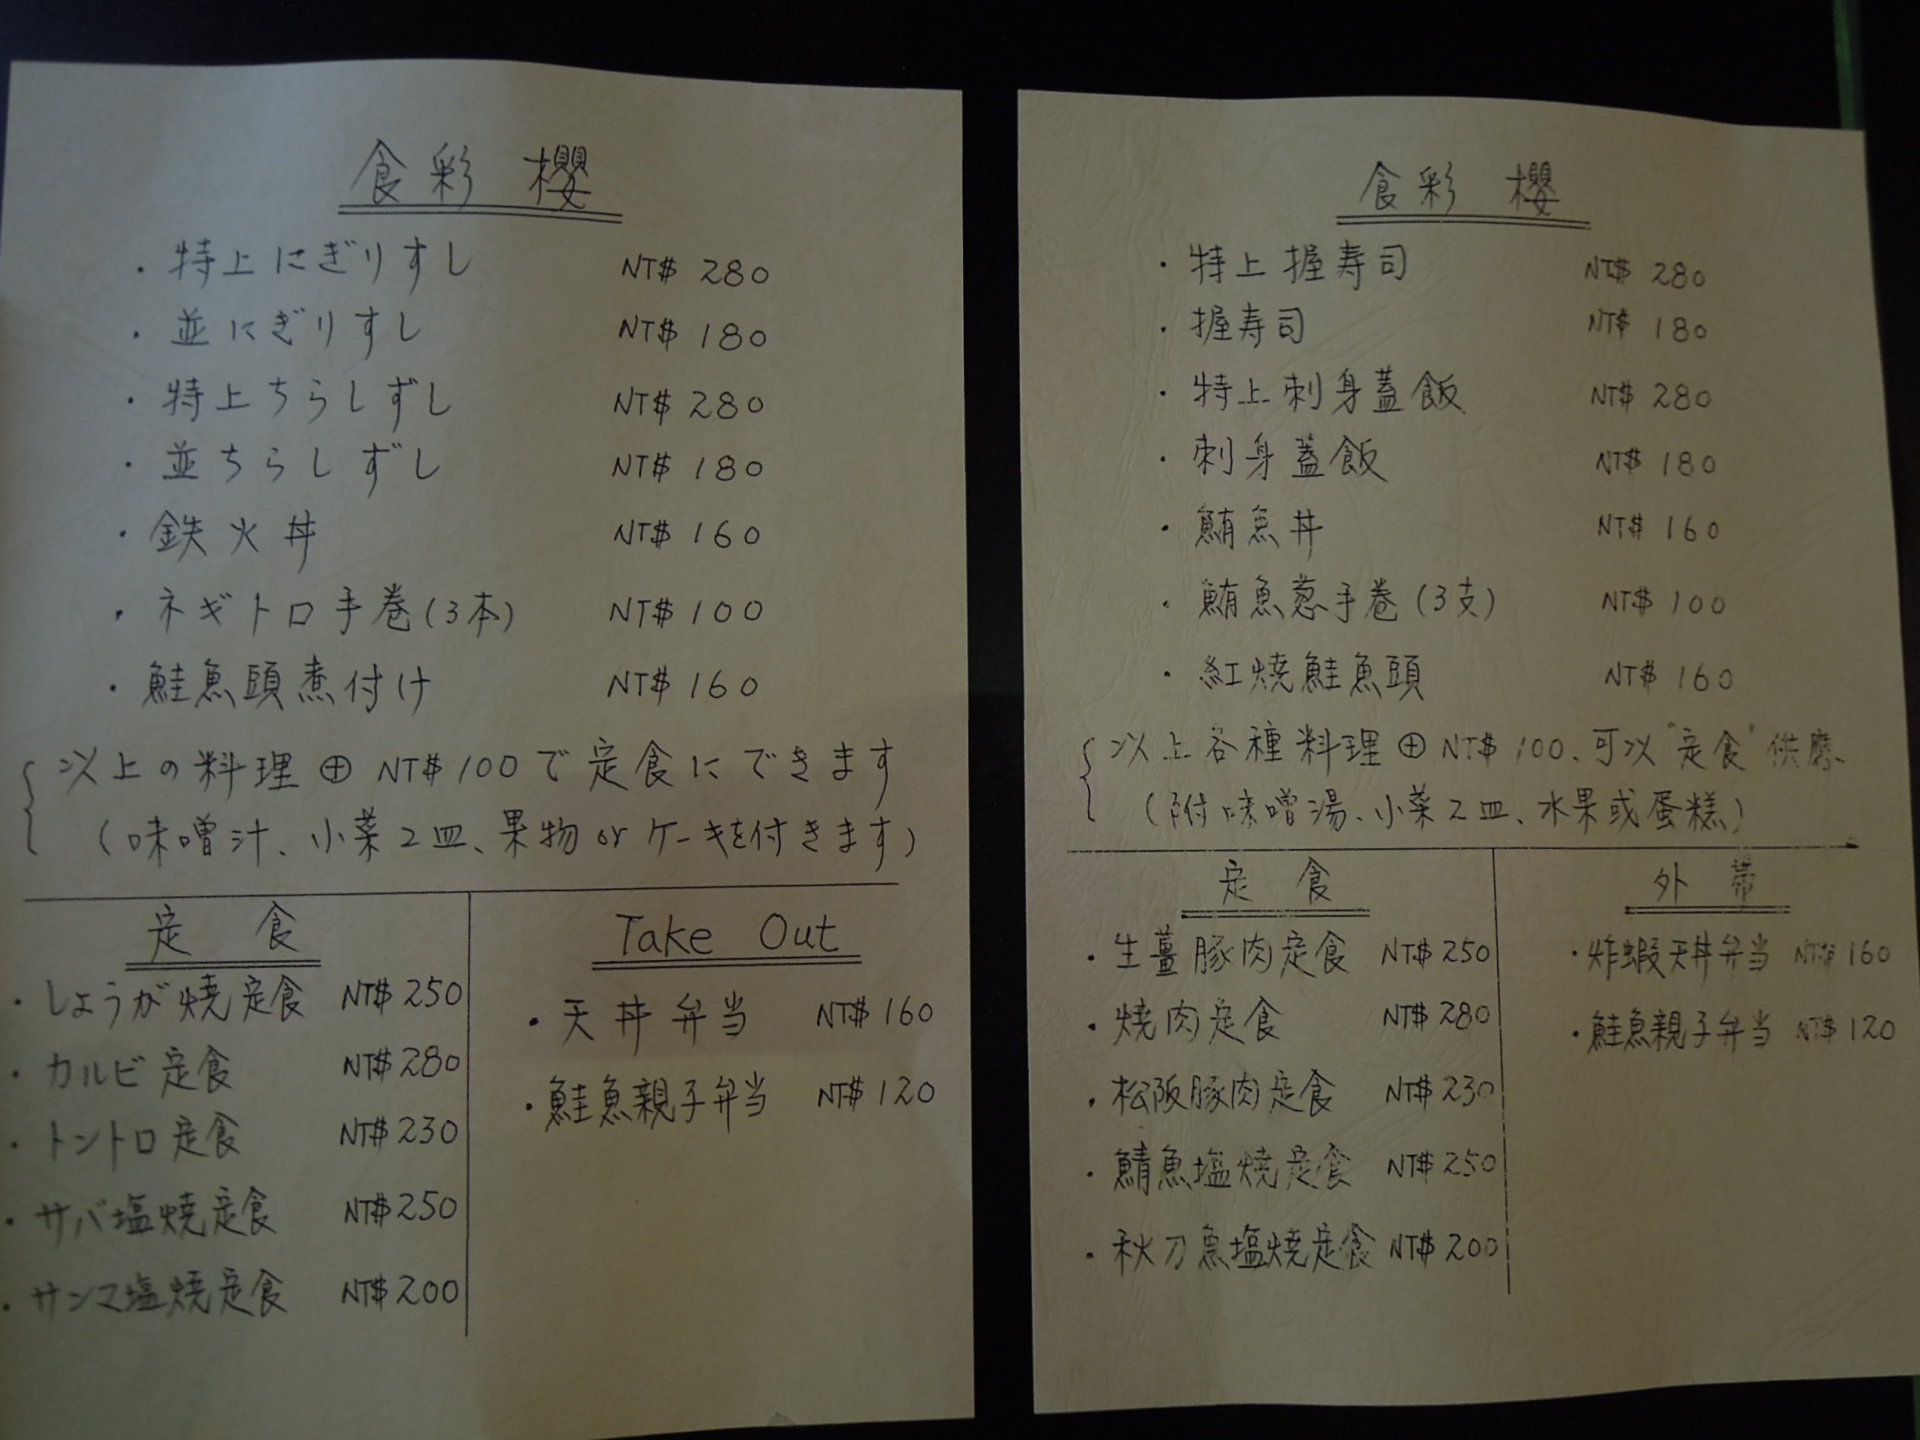 食彩 櫻
・特上にぎりすし NT$ 280
・並にぎりすし NT$ 180
・特上ちらしずし NT$ 280
・並ちらしずし NT$ 180
・鉄火丼 NT$ 160
・ネギトロ手巻(3本) NT$ 100
・鮭魚頭煮付け NT$ 160
以上の料理⊕NT$100で定食にできます
(味噌汁、小菜2皿、果物orケーキを付きます)
定食
・しょうが焼定食 NT$250
・カルビ定食 NT$280
・トントロ定食 NT$230
・サバ塩焼定食 NT$250
・サンマ塩焼定食 NT$200
Take Out
・天丼弁当 NT$160
・鮭魚親子弁当 NT$120
食彩 櫻
・特上握寿司 NT$ 280
・握寿司 NT$ 180
・特上刺身蓋飯 NT$ 280
・刺身蓋飯 NT$ 180
・鮪魚丼 NT$ 160
・鮪魚葱手巻(3支) NT$ 100
・紅焼鮭魚頭 NT$ 160
以上各種料理⊕NT$100、可以"定食"供應、
(附味噌湯、小菜2皿、水果或蛋糕)
定食
・生薑豚肉定食 NT$250
・焼肉定食 NT$280
・松阪豚肉定食 NT$230
・鯖魚塩焼定食 NT$250
・秋刀魚塩焼定食 NT$200
外帯
・炸蝦天丼弁当 NT$160
・鮭魚親子弁当 NT$120